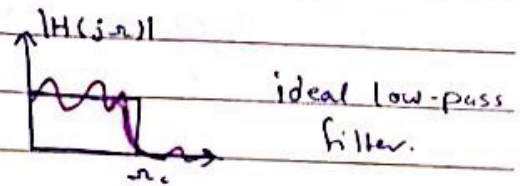 |H(jΩ)|
ideal low-pass
filter.
Ωc